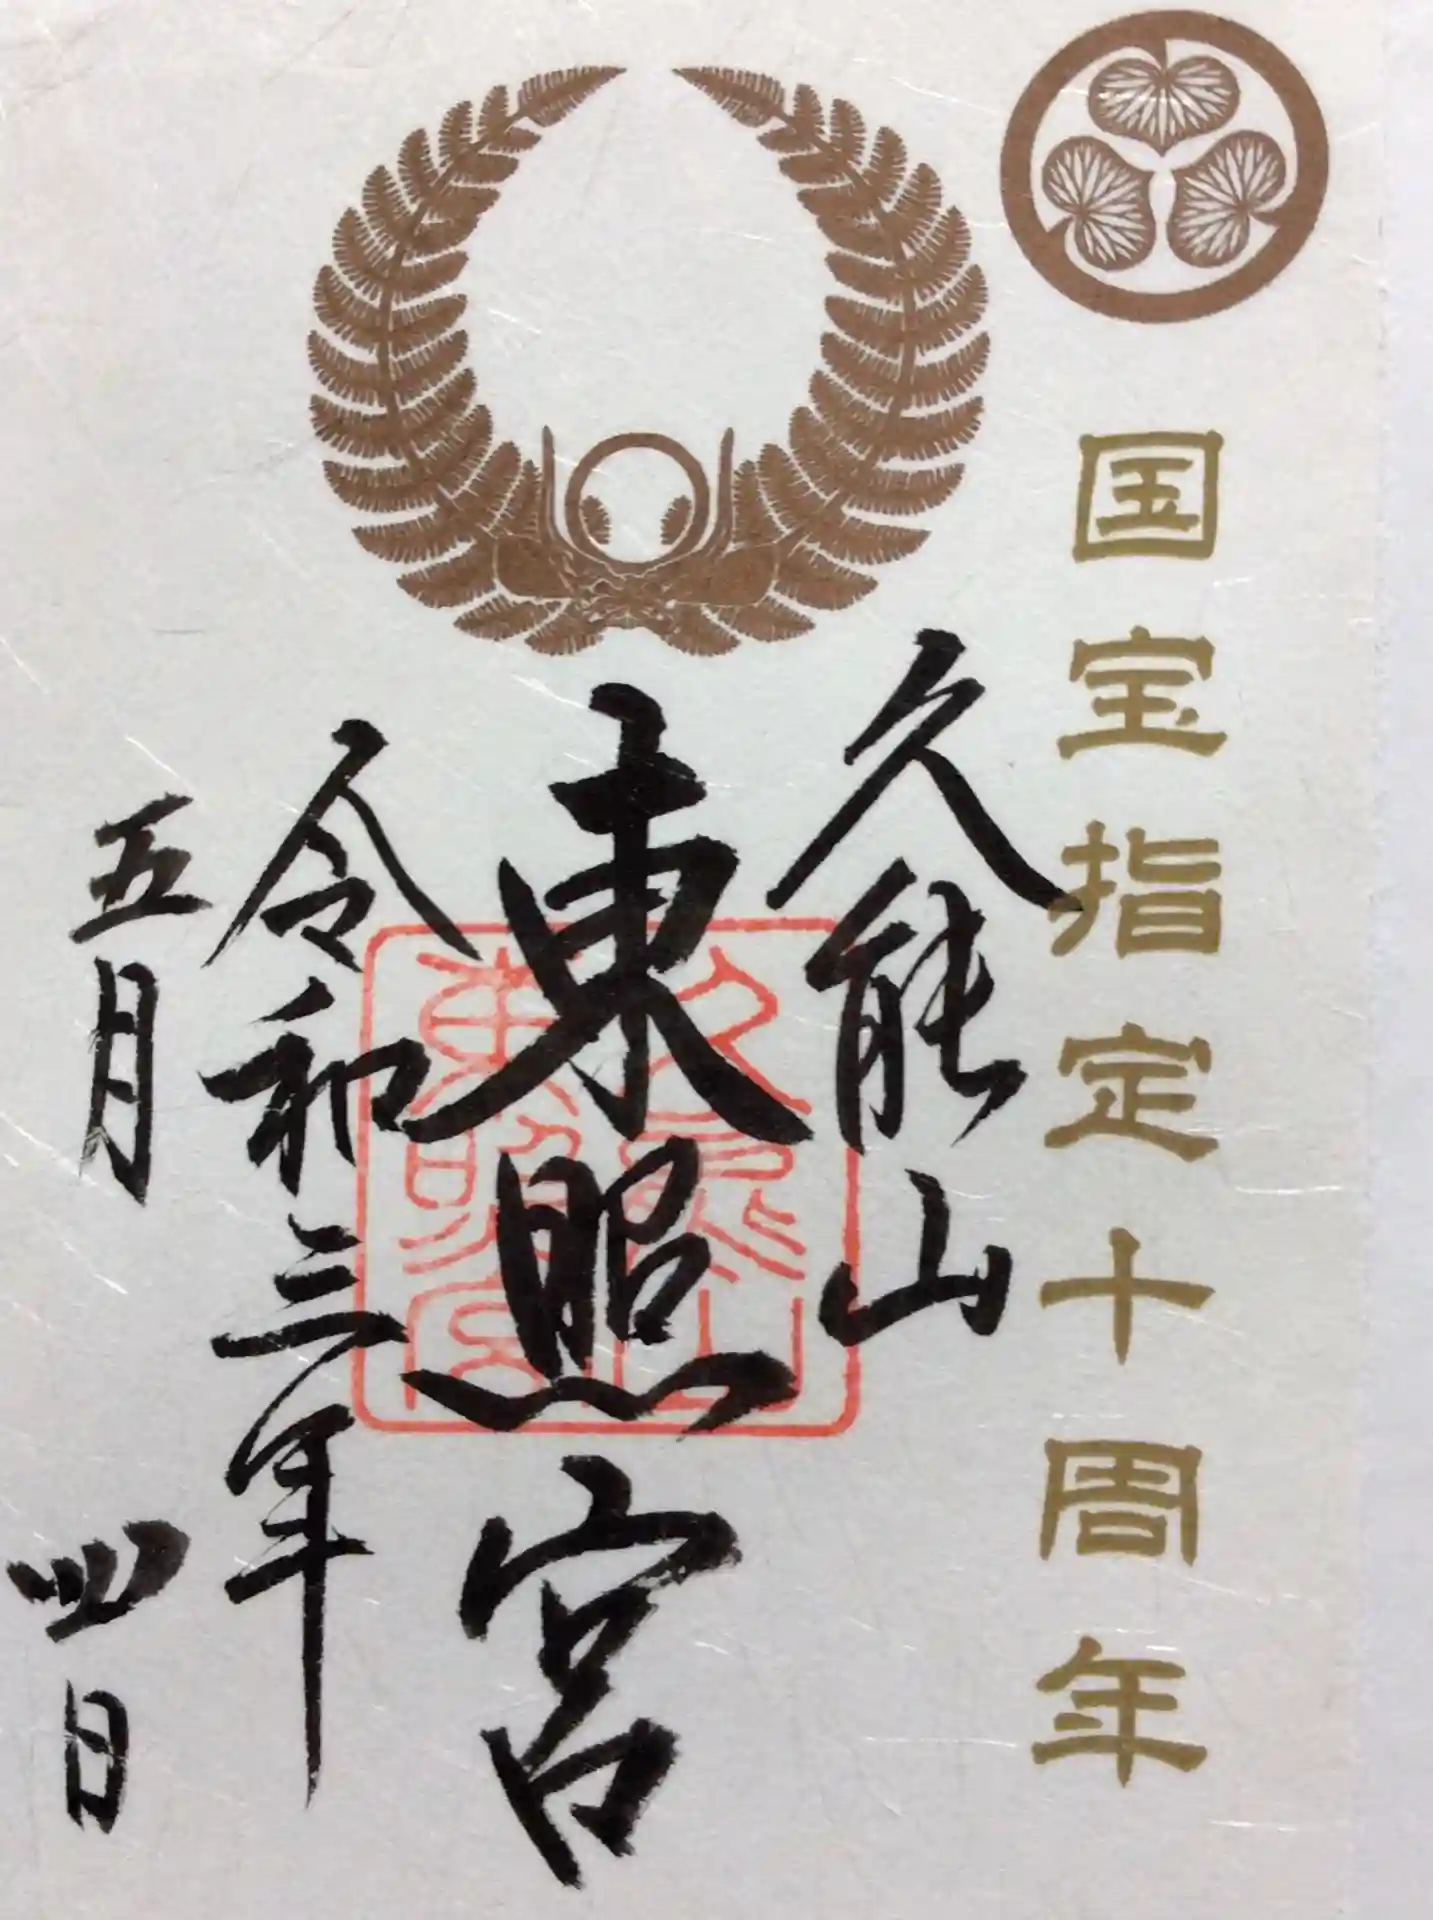 国宝指定十周年
久能山
東照宮
令和三年
五月四日
久能山
東照宮